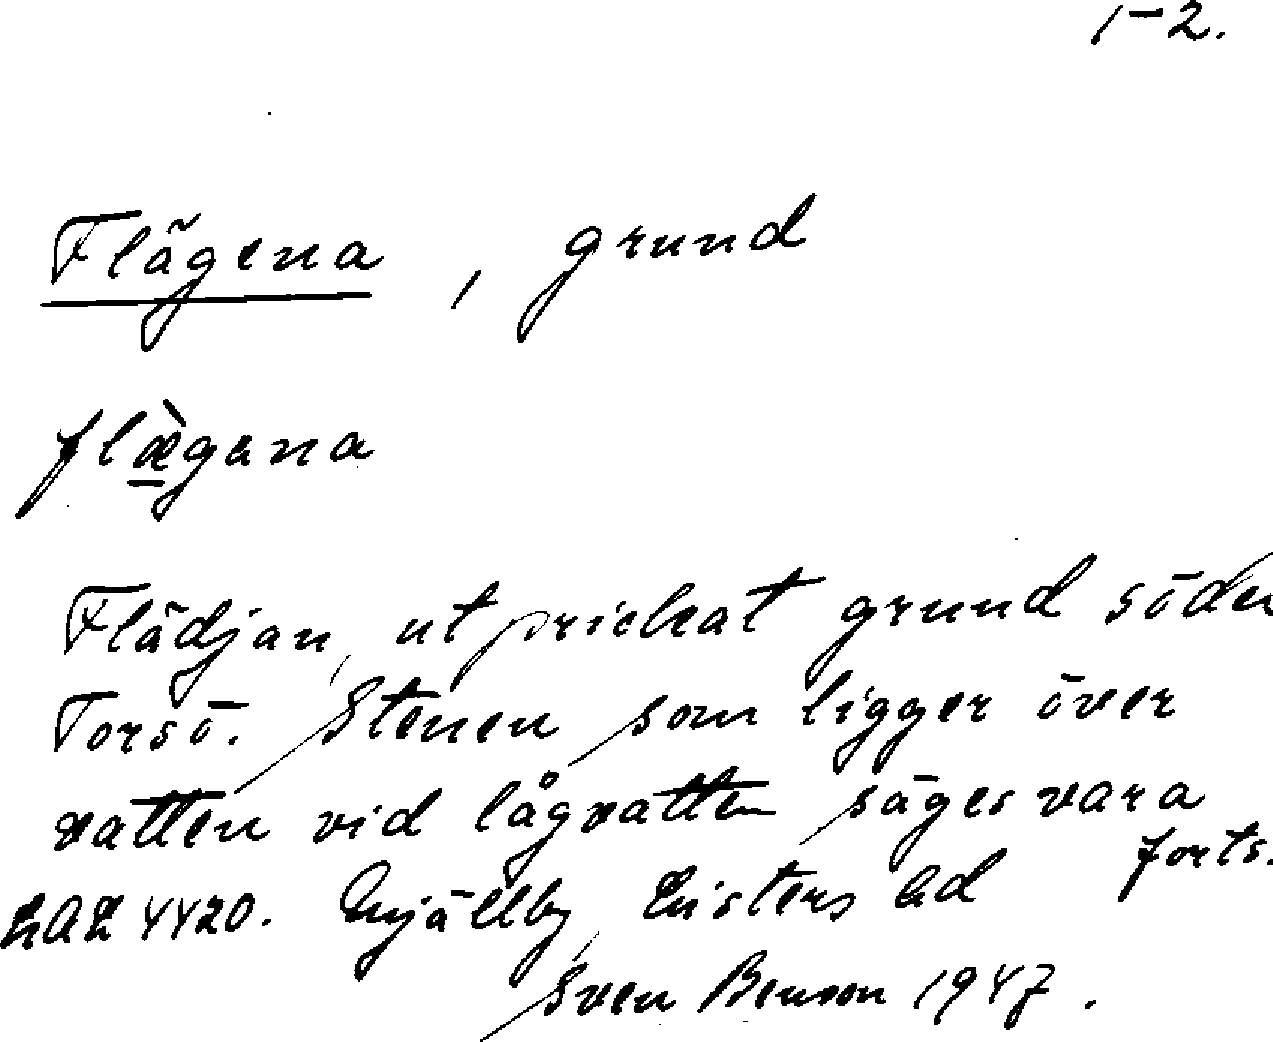 1-2.
Flägena, grund
flæ̀gana
Flädjan, utprickat grund söder
Torsö. Stenen som ligger över
vatten vid lågvatten säges vara
forts.
LAL 4420. Mjällby, Listers hd
Sven Benson 1947.